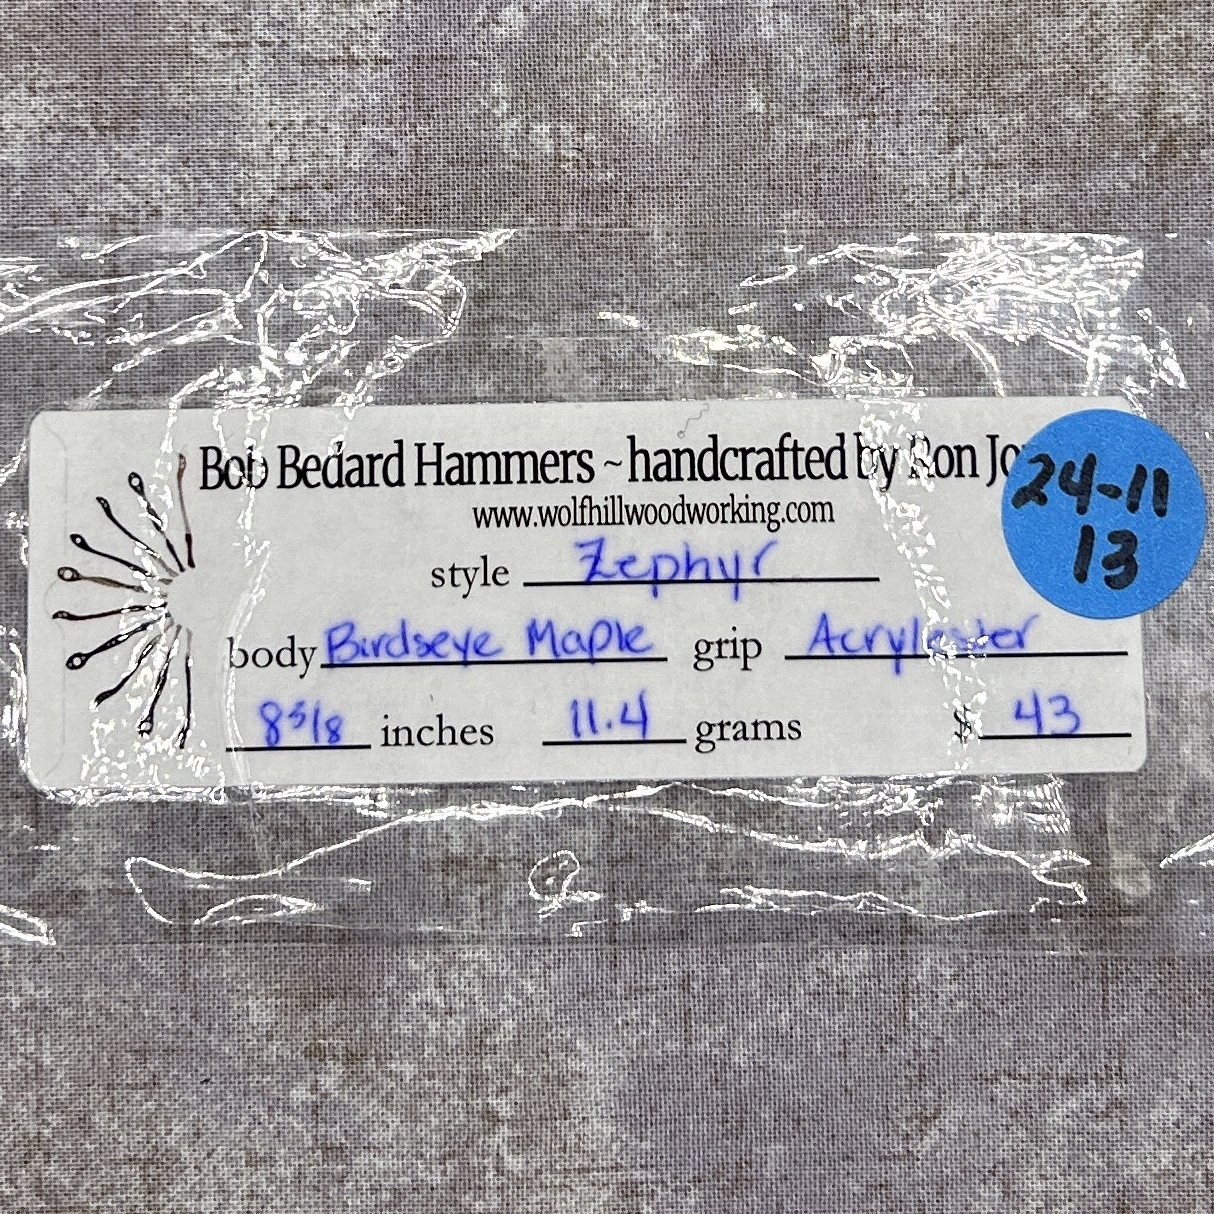 Bob Bedard Hammers ~ handcrafted by Ron
www.wolfhillwoodworking.com
style Zephyr
body Birdseye Maple grip
8 5/8 inches 11.4 grams $ 43
24-11
13